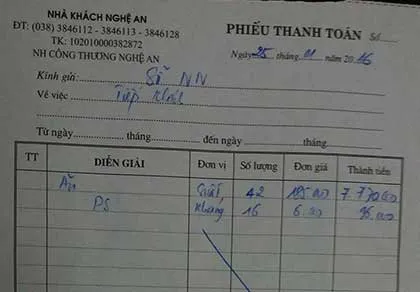 NHÀ KHÁCH NGHỆ AN
ĐT: (038) 3846112 - 3846113 - 3846128
TK: 102010000382872
NH CÔNG THƯƠNG NGHỆ AN
PHIẾU THANH TOÁN Số
Ngày 25 tháng 01 năm 2016
Kính gửi: Sở NN
Về việc Tiếp khách
Từ ngày tháng đến ngày tháng
TT DIỄN GIẢI Đơn vị Số lượng Đơn giá Thành tiền
Ăn Suất 42 185.000 7.770.000
PS Khăn 16 6.000 96.000